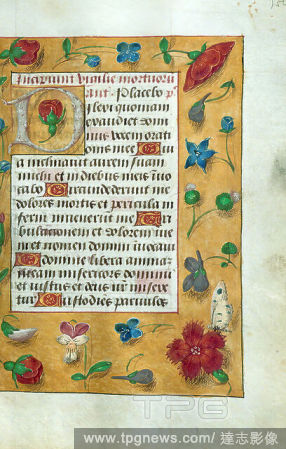 Incipiunt vigilie mortuoru
ant. Placebo p
Dilexi quoniam
exaudiet domi
nus vocem orati
onis mee Qui
a inclinavit aurem suam
michi et in diebus meis invo
cabo Circumdederunt me
dolores mortis et pericula in
ferni invenerunt me Tri
bulationem et dolorem inve
ni et nomen domini invocavi
O domine libera animam
meam misericors dominus
et iustus et deus noster misere
tur Custodiens parvulos
TPG
www.tpgnews.com/ 達志影像